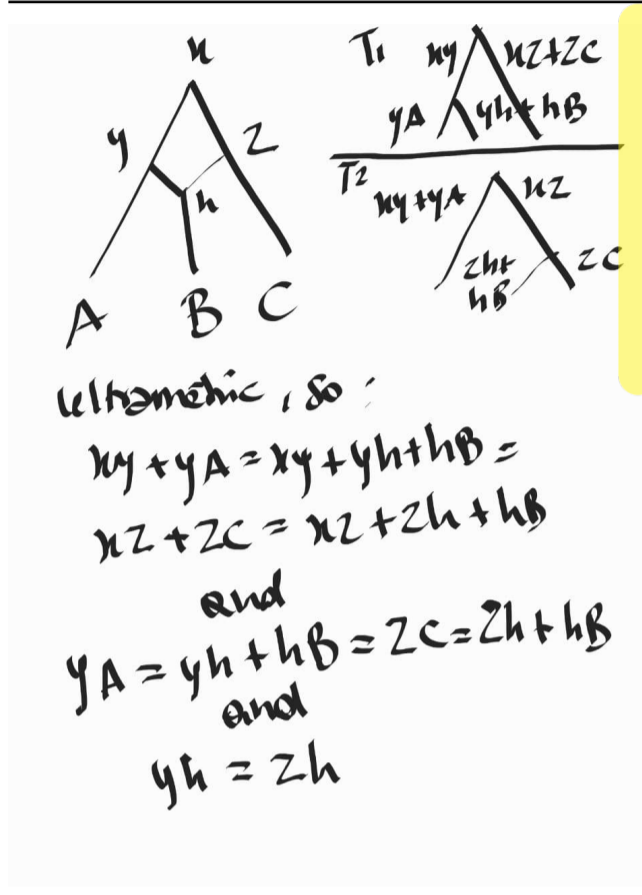 x
y
z
h
A B C
T1 xy xz+zc
yA yh+hB
T2 xy+yA xz
zh+
hB
zc
Ultrametric, so :
xy+yA=xy+yh+hB=
xz+zc=xz+zh+hB
and
yA=yh+hB=zc=zh+hB
and
yh=zh